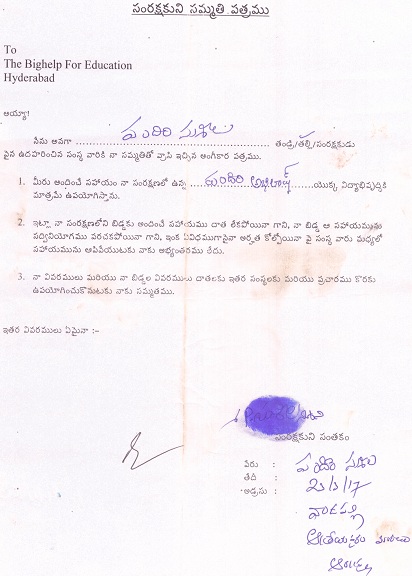 సంరక్షకుని సమ్మతి పత్రము
To
The Bighelp For Education
Hyderabad
అయ్యా!
నేను అనగా పందిరి సుశీల తండ్రి/తల్లి/సంరక్షకుడు
పైన ఉదహరించిన సంస్థ వారికి నా సమ్మతితో వ్రాసి ఇచ్చిన అంగీకార పత్రము.
1. మీరు అందించే సహాయం నా సంరక్షణలో ఉన్న పందిరి యొక్క విద్యాభివృద్ధికి
మాత్రమే ఉపయోగిస్తాను.
2. ఇట్లా నా సంరక్షణలోని బిడ్డకు అందించే సహాయము దాత లేకపోయినా గాని, నా బిడ్డ ఆ సహాయమును
సద్వినియోగము పరచకపోయినా గాని, ఇంక ఏవిధముగానైనా అర్హత కోల్పోయినా పై సంస్థ వారు మధ్యలో
సహాయమును ఆపివేయుటకు నాకు అభ్యంతరము లేదు.
3. నా వివరములు మరియు నా బిడ్డల వివరములు దాతలకు ఇతర సంస్థలకు మరియు ప్రచారము కొరకు
ఉపయోగించుకొనుటకు నాకు సమ్మతము.
ఇతర వివరములు ఏమైనా :-
సంరక్షకుని సంతకం
పేరు : పందిరి సుశీల
తేదీ :
అడ్రసు :